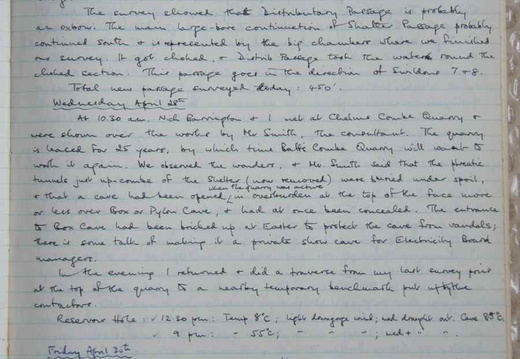 The survey showed that Distributary Passage is probably
an oxbow. The main large-bore continuation of Shatter Passage probably
continued South & is represented by the big chambers where we finished
our survey. It got choked, & Distrib Passage took the water round the
choked section. This passage goes in the direction of Swildons 7 & 8.
Total new passage surveyed today: 450'.
Wednesday April 28th
At 10.30 am. Nick Barrington & I met at Chelms Combe Quarry &
were shown over the works by Mr Smith, the consultant. The quarry
is leased for 25 years, by which time Batts Combe Quarry will want to
work it again. We observed the wonders, & Mr. Smith said that the phreatic
tunnels just up-combe of the Shelter (now removed) were buried under spoil,
when the quarry was active
& that a cave had been opened in overburden at the top of the face more
or less over Box or Pylon Cave, & had at once been concealed. The entrance
to Box Cave had been bricked up at Easter to protect the cave from vandals;
there is some talk of making it a private show cave for Electricity Board
managers.
In the evening I returned & did a traverse from my last survey point
at the top of the quarry to a nearby temporary benchmark put up by the
contractors.
Reservoir Hole: 12.30 pm: Temp 8°C, light drainage wind; wed draught out. Cave
9 pm: " 5½°C; " " " ; wed + " "
Friday April 30th